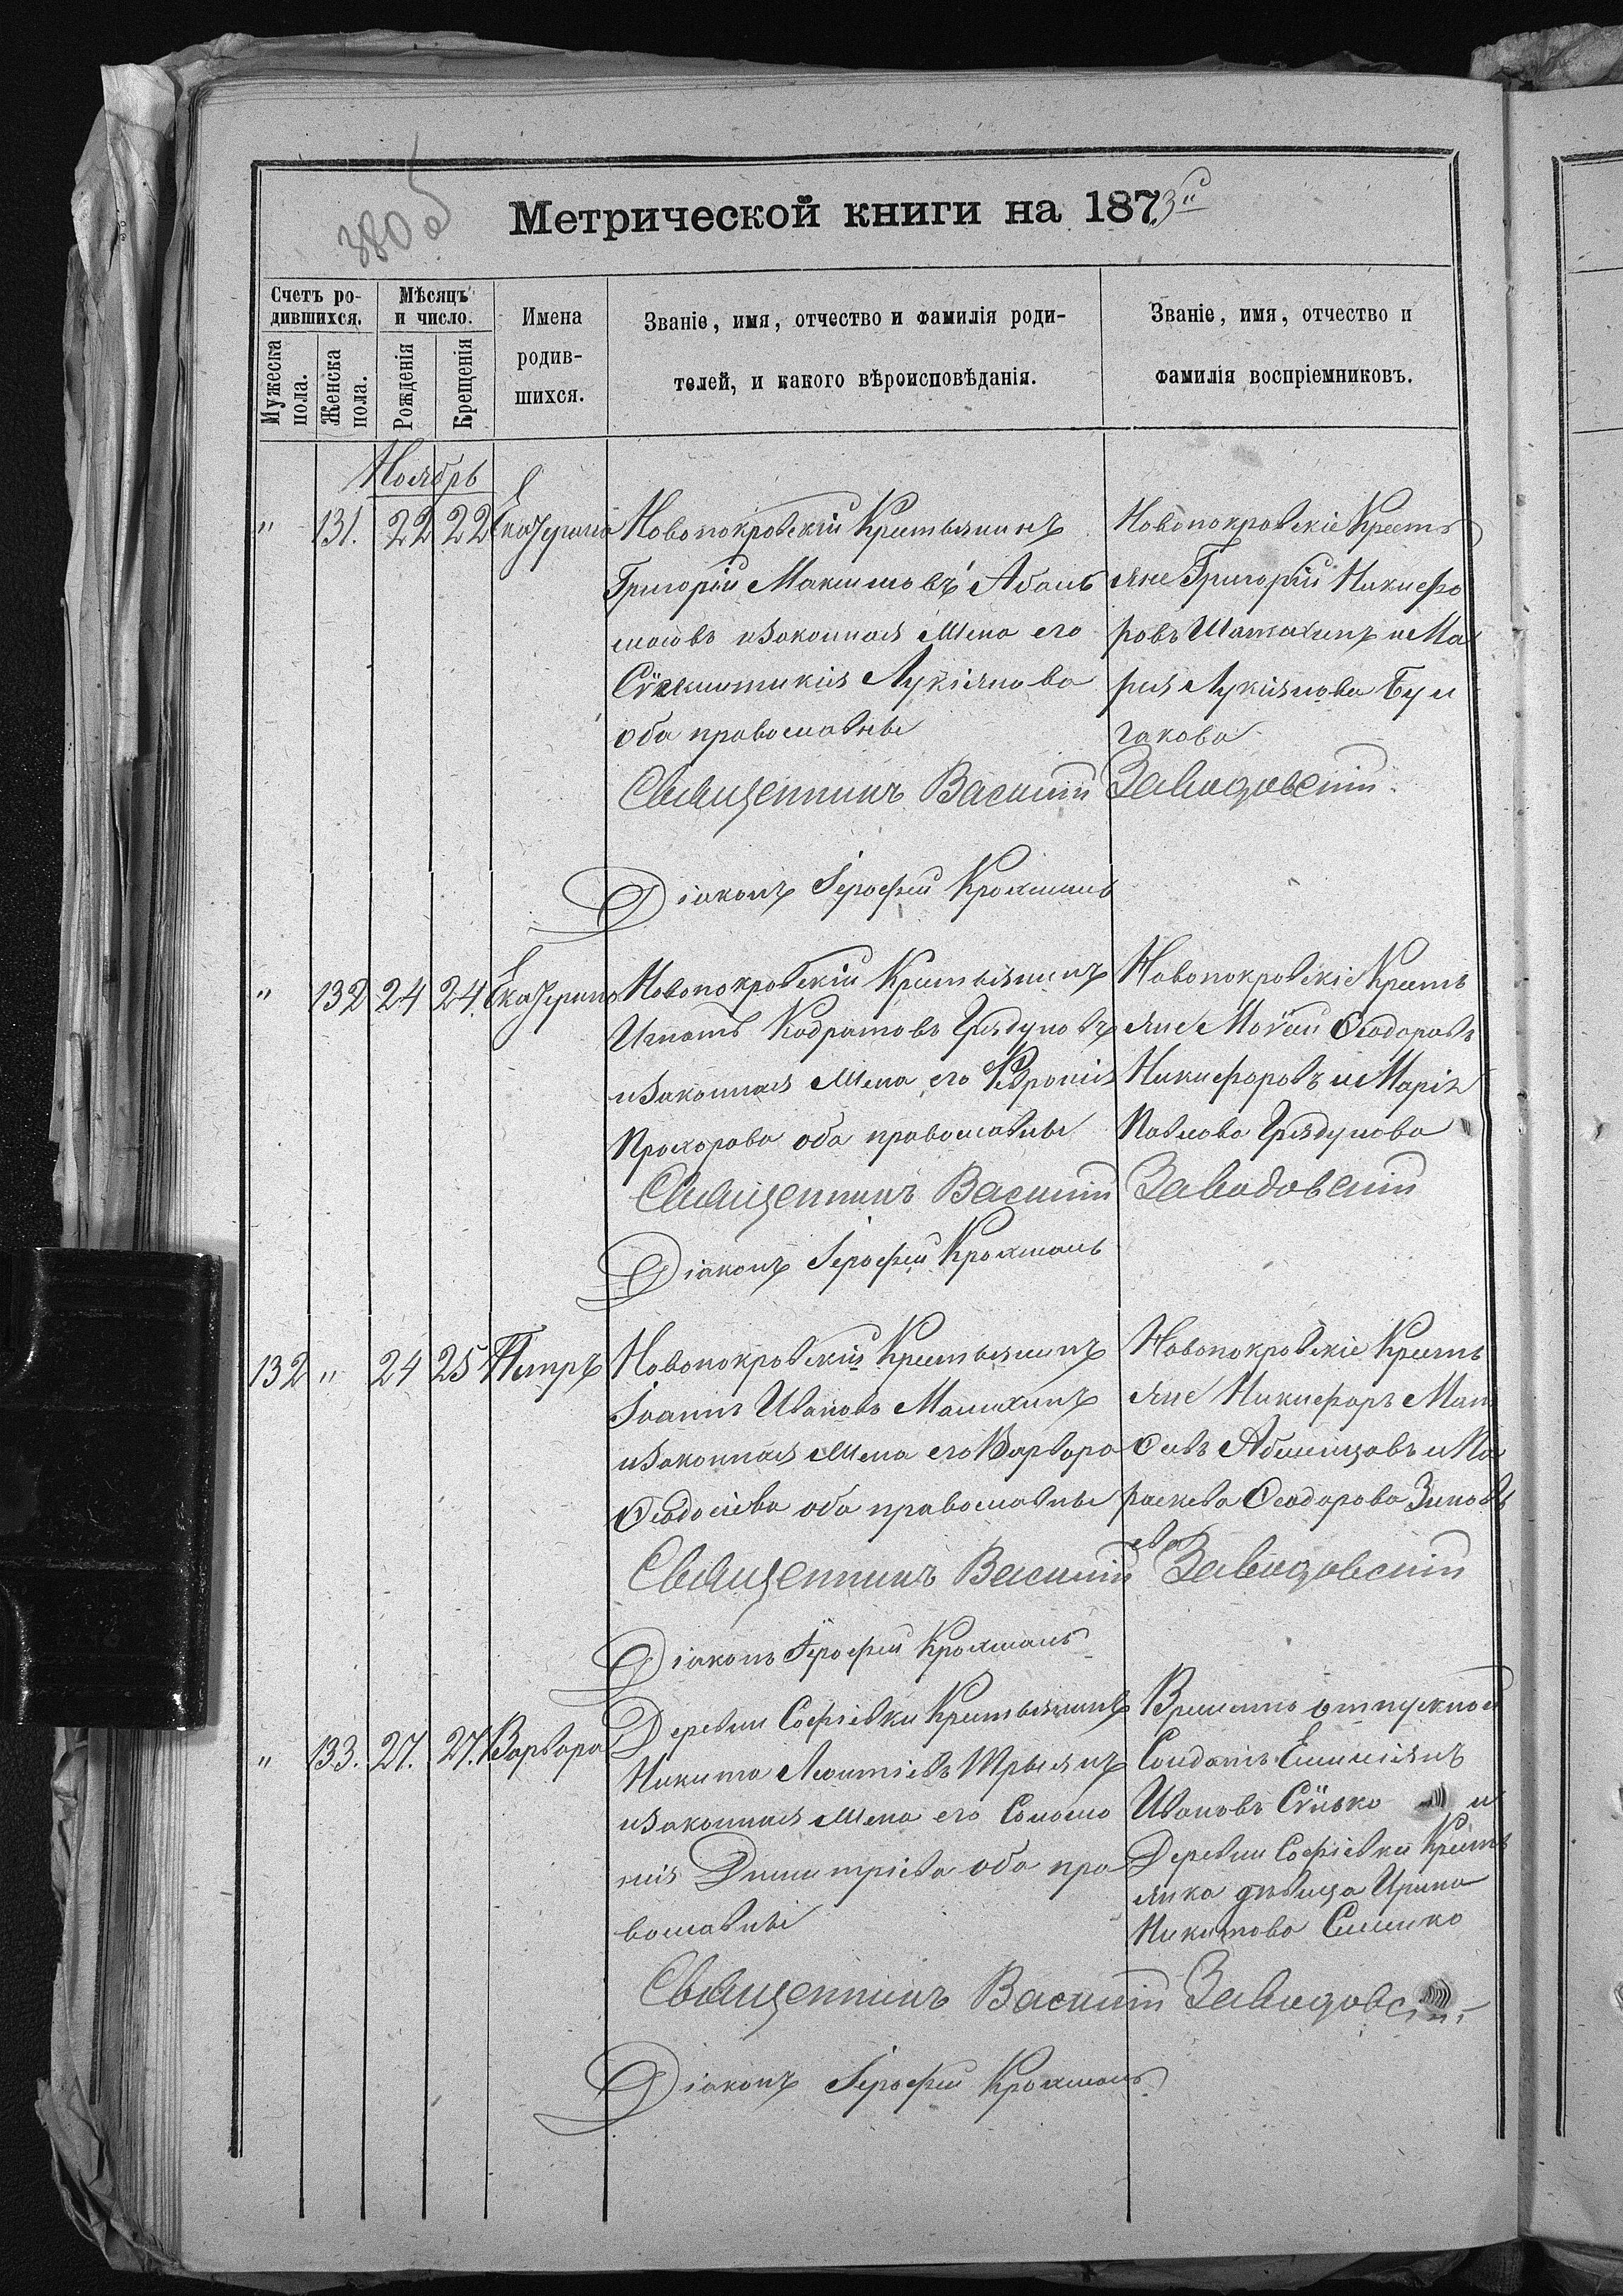 380 об
Метрической книги на 1873й
Счетъ ро-
дившихся.
Мужеска пола.
Женска пола.
Мѣсяцъ
и число.
Рожденія
Крещенія
Имена
родив-
шихся.
Званіе, имя, отчество и фамилія роди-
телей, и какого вѣроисповѣданія.
Званіе, имя, отчество и
фамилія воспріемниковъ.
Ноябрь
" 131. 22 22 Екатерина
Новопокровскій Крестьянинъ
Григорій Максимовъ
изаконная жена его
Лукіянова
оба православные
Новопокровскіе Кресть
яне Григорій Никифо
ровъ иМа
рія Лукіянова Бул
гакова
Священникъ Василій Заводовскій.
Діаконъ Іерофей Крохмаль
" 132 24 24. Екатерина
Новопокровскій Крестьянинъ
Игнатъ Кодратовъ Грядуновъ
изаконная жена его Февронія
Прохорова оба православные
Новопокровскіе Кресть
яне Моѵсей Ѳеодоровъ
Никифоровъ иМарія
Павлова Грядунова
Священникъ Василій Заводовскій
Діаконъ Іерофей Крохмаль
132 " 24 25 Петръ
Новопокровскій Крестьянинъ
Іоаннъ Ивановъ Малихинъ
изаконная жена его Варвара
Ѳеодосіева оба православные
Новопокровскіе Кресть
яне Никифоръ Мат
ѳѣевъ иПа
раскева Ѳеодорова Зиновь
ева
Священникъ Василій Заводовскій
Діаконъ Іерофей Крохмаль
" 133. 27. 27. Варвара
Деревни Софіевки Крестьянинъ
Никита Леонтіевъ
изаконная жена его Соломо
нія Димитріева оба пра
вославные
Времено отпускной
Солдатъ Емиліянъ
Ивановъ Сѵнько и
Деревни Софіевки Кресть
янка дѣвица Ирина
Никитова
Священникъ Василій Заводовскій
Діаконъ Іерофей Крохмаль.